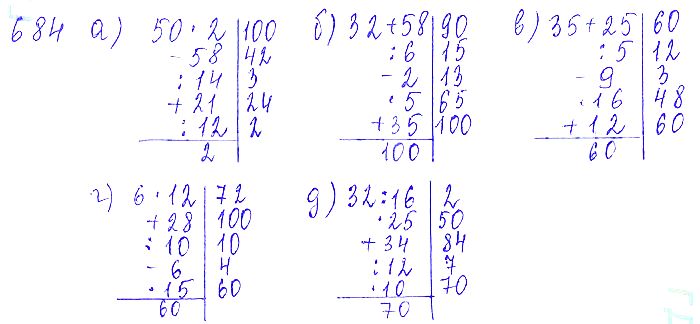 684 а) 50 · 2 | 100
- 58 | 42
: 14 | 3
+ 21 | 24
: 12 | 2
2
б) 32 + 58 | 90
: 6 | 15
- 2 | 13
· 5 | 65
+ 35 | 100
100
в) 35 + 25 | 60
: 5 | 12
- 9 | 3
· 16 | 48
+ 12 | 60
60
г) 6 · 12 | 72
+ 28 | 100
: 10 | 10
- 6 | 4
· 15 | 60
60
д) 32 : 16 | 2
· 25 | 50
+ 34 | 84
: 12 | 7
· 10 | 70
70